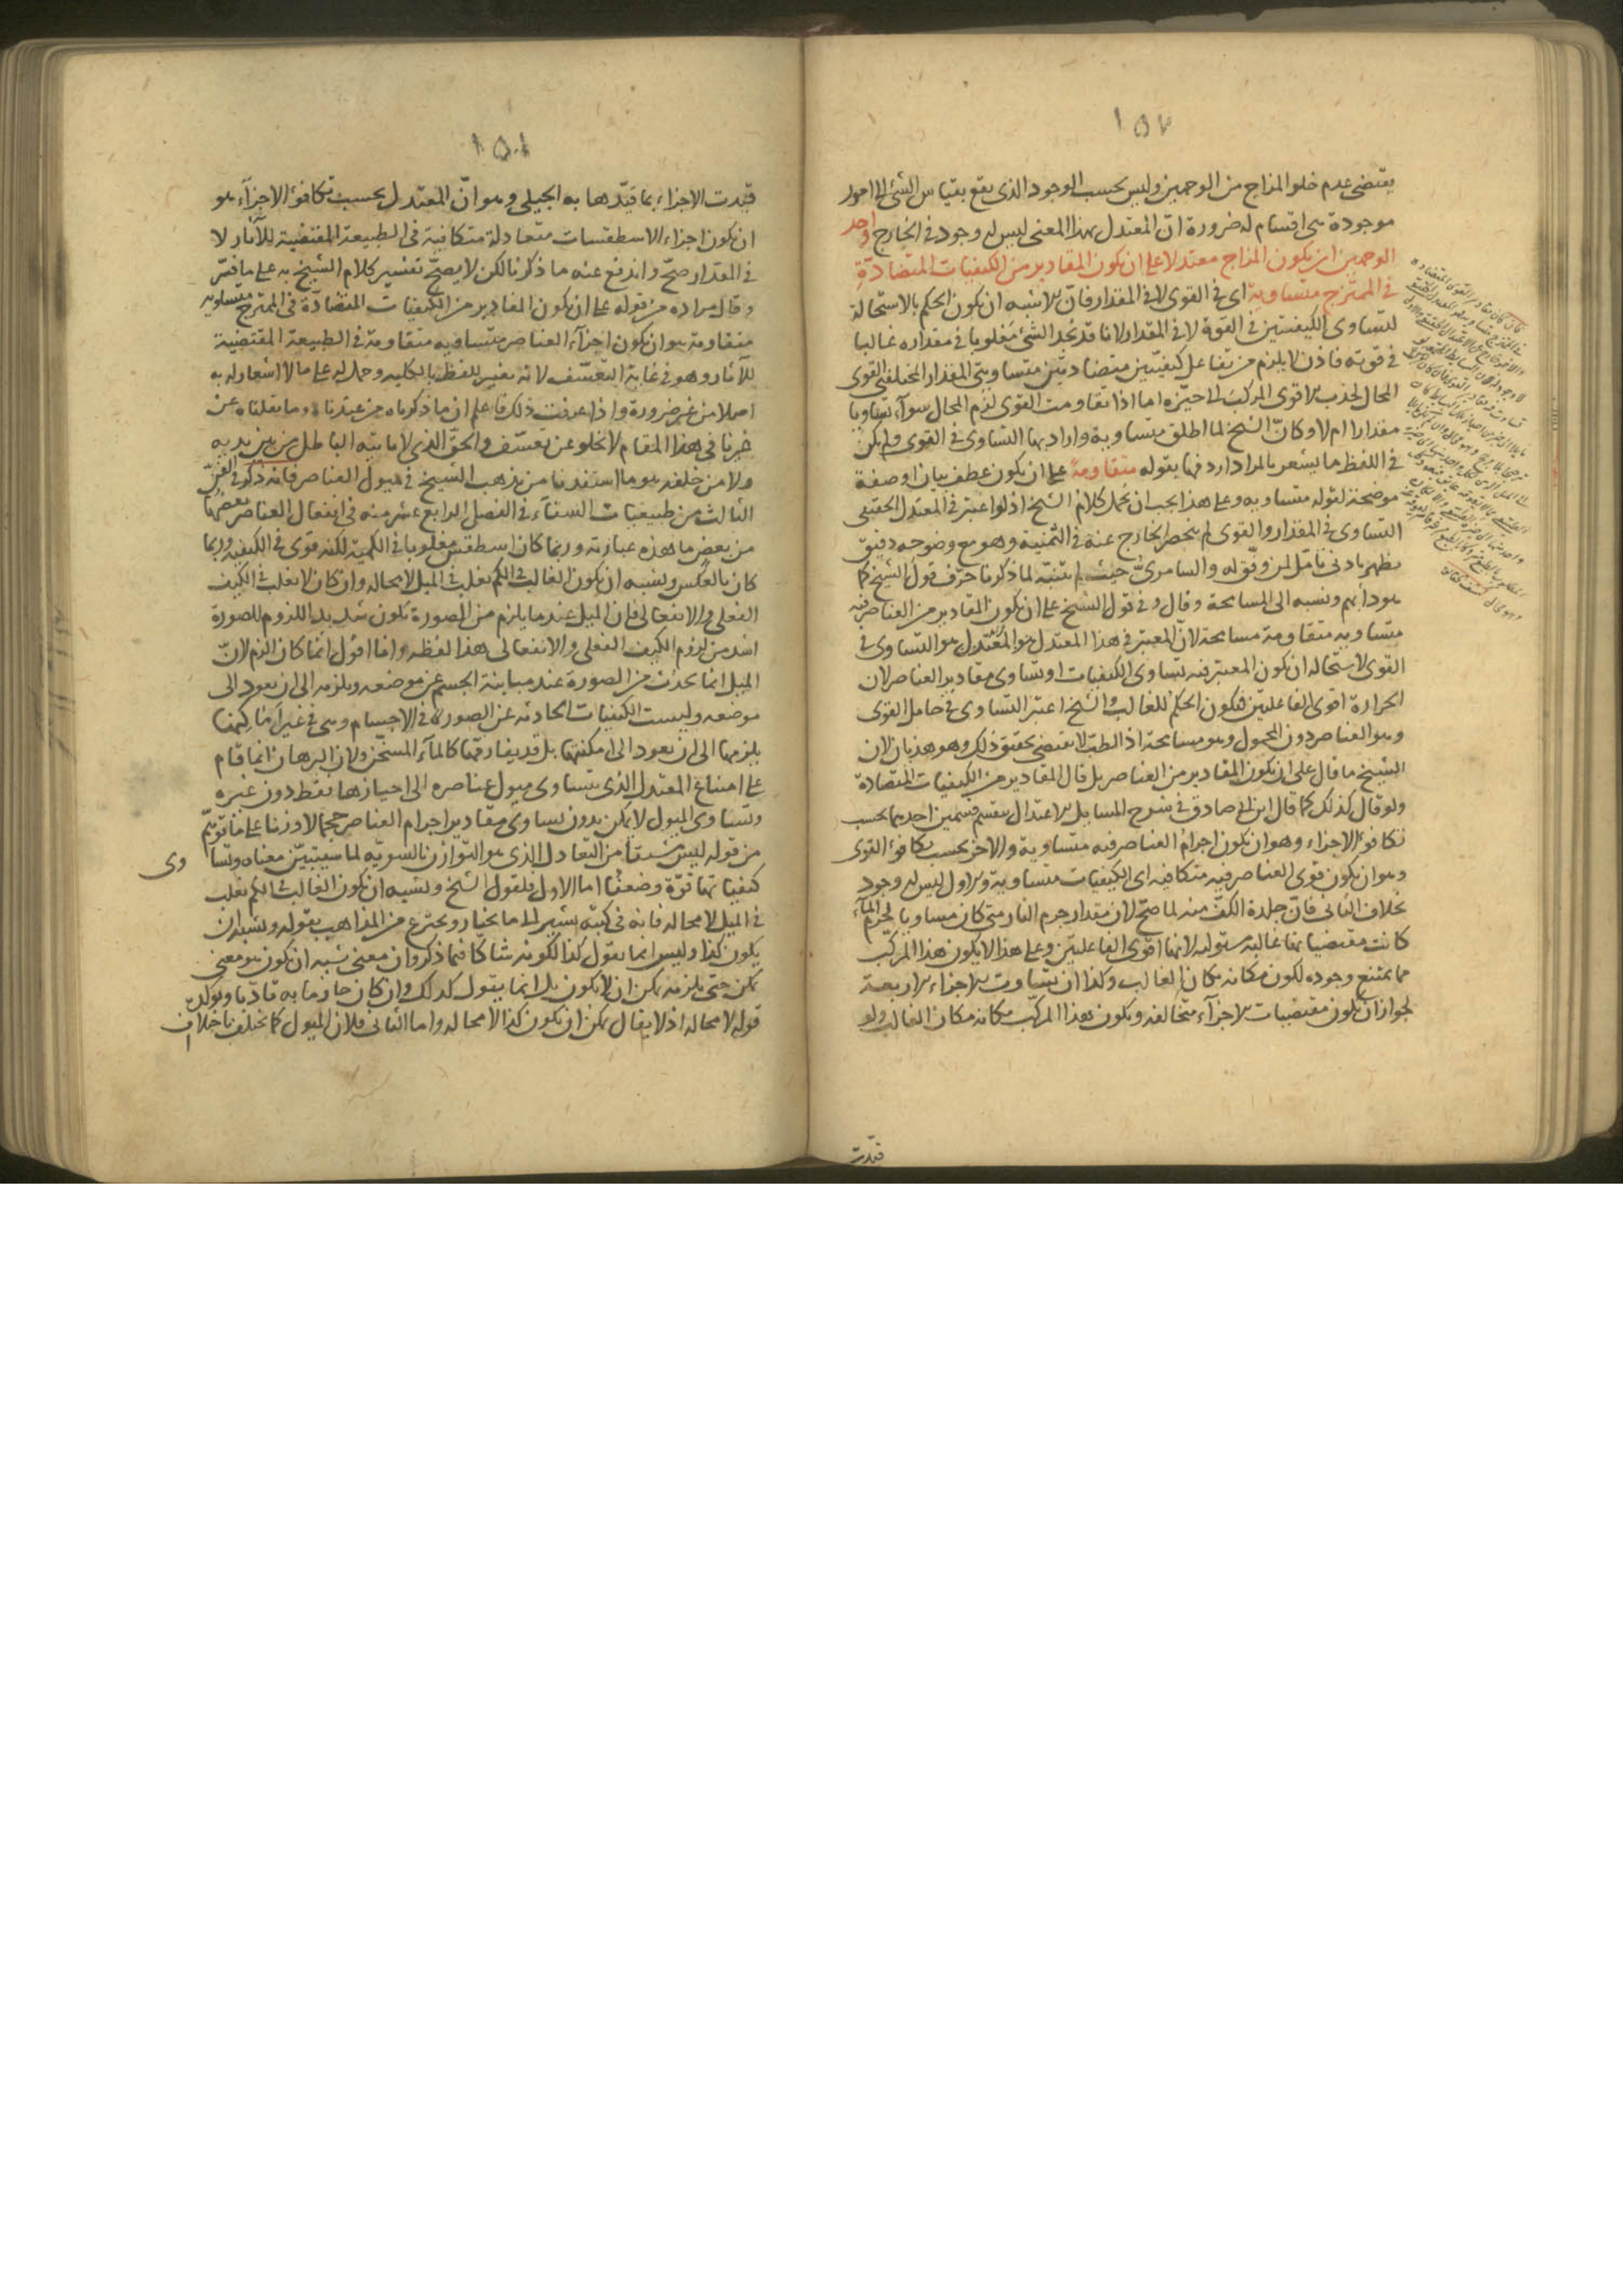 ١٥٢
يقتضى عدم خلو المزاج من الوجهين وليس بحسب الوجود الذى يقع بقياس الشئ الى امور
موجودة هى اقسام له ضرورة انّ المعتدل بهذا المعنى ليس له وجود فى الخارج واحد
الوجهين ان يكون المزاج معتدلا على ان يكون المقادير من الكيفيات المتضادّة
فى الممتزج متساوية اى فى القوى لا فى المقدار فانّ الاشبه ان يكون الحكم بالاستحالة
لتساوى الكيفيتين فى القوة لا فى المقدار لانا قد نجد الشئ مغلوبا فى مقداره غالبا
فى قوته فاذن لا يلزم من تفاعل كيفيّتين متضادتين متساويتى المقدار المختلفتى القوى
المحال لجذب الاقوى المركب الى حيّزه اما اذا تقاومت القوى لزم المحال سوآء تساويا
مقدارا ام لا وكانّ الشيخ لما اطلق متساوية واراد بها التساوى فى القوى ولم يكن
فى اللفظ ما يشعر بالمراد اردفها بقوله متقاومةً على ان يكون عطف بيان او صفة
موضحة لقوله متساوية وعلى هذا يجب ان يحمل كلام الشيخ اذ لو اعتبر فى المعتدل الحقيقى
التساوى فى المقدار والقوى لم ينحصر الخارج عنه فى الثمنية وهو مع وضوحه دقيق
يظهر بادنى تأمّل لمن وفّق له والسامرىّ حيث لم يتنبّه لما ذكرنا حرّف قول الشيخ كما
هو دأبهم ونسبه الى المسامحة وقال وفى قول الشيخ على ان يكون المقادير من العناصر فيه
متساوية متقاومة مسامحة لانّ المعتبر فى هذا المعتدل هو التساوى فى
القوى لاستحالة ان يكون المعتبر فيه تساوى الكيفيات او تساوى مقادير العناصر لان
الحرارة اقوى الفاعليّن فيكون الحكم للغالب والشيخ اعتبر التساوى فى حامل القوى
وهو العناصر دون المحمول وهو مسامحة اذ الطبّ لا يقتضى تحقيق ذلك وهو هذيان لان
الشيخ ما قال على ان يكون المقادير من العناصر بل قال المقادير من الكيفيات المتضادة
ولو قال كذلك كما قال ابن ابى صادق فى شرح المسايل الاعتدال ينقسم قسمين احدهما بحسب
تكافؤ الاجزاء وهو ان يكون اجرام العناصر فيه متساوية والاخر بحسب تكافؤ القوى
وهو ان يكون قوى العناصر فيه متكافية اى الكيفيات متساوية والاول ليس له وجود
بخلاف الثانى فانّ جلدة الكفّ منه لما صحّ لان مقدار جرم النار متى كان مساويا لجرم المآء
كانت مقتضياتها غالبة مستولية لانها اقوى الفاعليّن وعلى هذا لا يكون هذا المركّب
مما يمتنع وجوده لكون مكانه مكان الغالب وكذا ان تساوت الاجزاء الاربعة
لجواز ان يكون مقتضيات الاجزآء متخالفة ويكون هذا المركّب مكانه مكان الغالب ولو
قيّدت
١٥١
قيّدت الاجزاء بما قيّدها به الجيلى وهو انّ المعتدل بحسب تكافؤ الاجزآء هو
ان يكون اجزاء الاسطقسات متعادلة متكافية فى الطبيعة المقتضية للآثار لا
فى المقدار صحّ واندفع عنه ما ذكرنا لكن لا يصحّ تفسير كلام الشيخ به على ما فسّر
وقال مراده من قوله على ان يكون المقادير من الكيفيات المتضادّة فى الممتزج متساوية
متقاومة هو ان يكون اجزآء العناصر متساوية متقاومة فى الطبيعة المقتضية
للآثار وهو فى غاية التعسّف لانه تغيير للفظ بالكلية وحمل له على ما لا اشعار له به
اصلا من غير ضرورة واذا عرفت ذلك فاعلم ان ما ذكرناه من عندنا وما نقلناه عن
غيرنا فى هذا المقام لا يخلو عن تعسّف والحقّ الذى لا يأتيه الباطل من بين يديه
ولا من خلفه هو ما استفدنا من مذهب الشيخ فى ميول العناصر فانه ذكر فى الفنّ
الثالث من طبيعيات الشفآء فى الفصل الرابع عشر منه فى انفعال العناصر بعضها
من بعض ما هذه عبارته وربما كان اسطقس مغلوبا فى الكمية لكنه قوى فى الكيفية وربما
كان بالعكس ويشبه ان يكون الغالب فى الكم يغلب فى الميل لا محالة وان كان لا يغلب فى الكيف
الفعلى والانفعالى فان الميل عندما يلزم من الصورة يكون شديد اللزوم للصورة
اشد من لزوم الكيف الفعلى والانفعالى هذا لفظه وانا اقول انما كان الزم لانّ
الميل انما يحدث من الصورة عند مباينة الجسم عن موضعه ويلزمه الى ان يعود الى
موضعه وليست الكيفيات الحادثة عن الصورة فى الاجسام وهى فى غير امكنتها
يلزمها الى ان يعود الى امكنتها بل قد يفارقها كالمآء المسخّن ولان البرهان انما قام
على امتناع المعتدل الذى يتساوى ميول عناصره الى احيازها فقط دون غيره
وتساوى الميول لا يمكن بدون تساوى مقادير اجرام العناصر حجما لا وزنا على ما توهّم
من قوله ليس مشتقا من التعادل الذى هو التوازن بالسوية لما سيتبيّن معناه وتساوى
كيفياتها قوّة وضعفا اما الاول فلقول الشيخ ويشبه ان يكون الغالب فى الكم يغلب
فى الميل لا محالة فانه فى كتبه يشير الى ما يختار ويخترع من المذاهب بقوله ويشبه ان
يكون كذا وليس انما يقول كذا لكونه شاكا فيما ذكر وان معنى يشبه ان يكون هو معنى
يمكن حتى يلزمه يمكن ان لا يكون بل انما يقول كذلك وان كان جازما به تأدّبا ويؤكده
قوله لا محالة اذ لا يقال يمكن ان يكون كذا لا محالة واما الثانى فلان الميول كما يختلف باختلاف